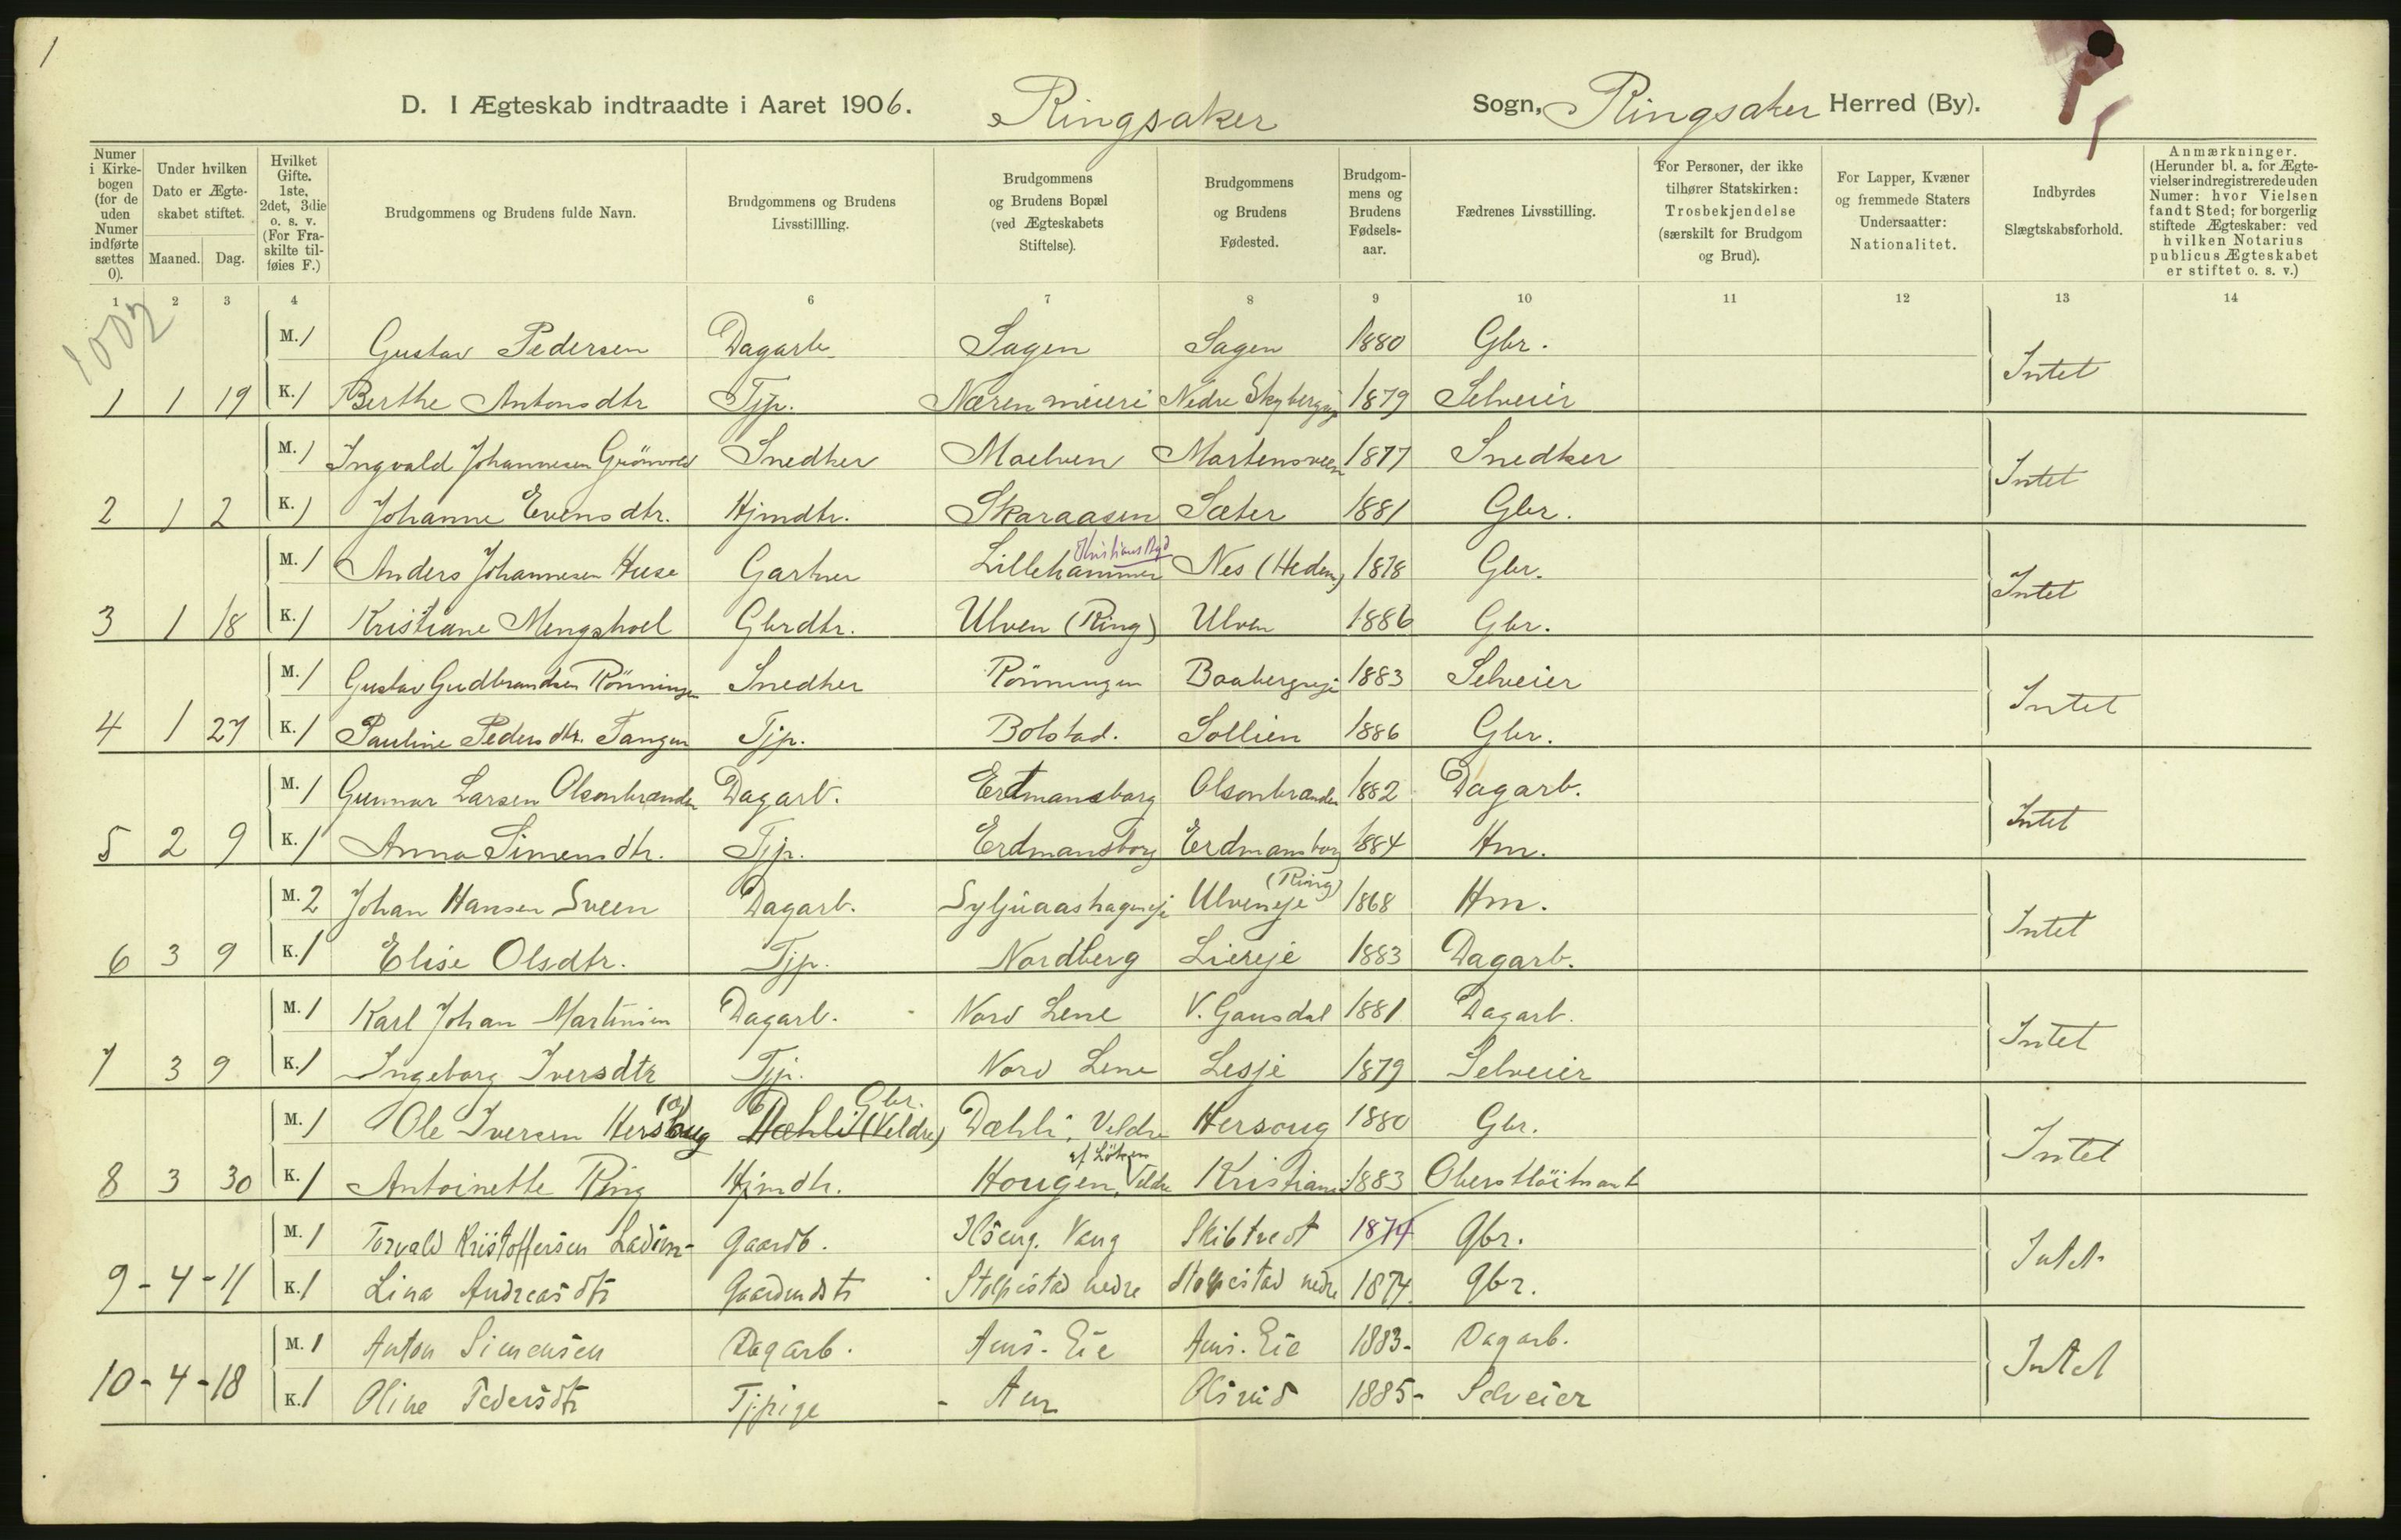 1
D. I Ægteskab indtraadte i Aaret 1906. Ringsaker Sogn, Ringsaker Herred (By).
Numer i Kirkebogen (for de uden Numer indførte sættes 0). Under hvilken Dato er Ægteskabet stiftet. Maaned. Dag. Hvilket Gifte. 1ste, 2det, 3die o. s. v. (For Fraskilte tilføies F.) Brudgommens og Brudens fulde Navn. Brudgommens og Brudens Livsstillling. Brudgommens og Brudens Bopæl (ved Ægteskabets Stiftelse). Brudgommens og Brudens Fødested. Brudgommens og Brudens Fødselsaar. Fædrenes Livsstilling. For Personer, der ikke tilhører Statskirken: Trosbekjendelse (særskilt for Brudgom og Brud). For Lapper, Kvæner og fremmede Staters Undersaatter: Nationalitet. Indbyrdes Slægtskabsforhold. Anmærkninger. (Herunder bl. a. for Ægtevielser indregistrerede uden Numer: hvor Vielsen fandt Sted; for borgerlig stiftede Ægteskaber: ved hvilken Notarius publicus Ægteskabet er stiftet o. s. v.)
1 2 3 4 6 7 8 9 10 11 12 13 14
1002
M. 1 Gustav Pedersen Dagarb. Sagen Sagen 1880 Gbr.
Intet
1 1 19 K. 1 Berthe Antonsdtr Tjp. Næren meieri Nedre Skybergeje 1879 Selveier
M. 1 Ingvald Johannesen Grönvold Snedker Moelven Martensveen 1877 Snedker
Intet
2 1 2 K. 1 Johanne Evensdtr. Hjmdtr. Skaraasen Sæter 1881 Gbr.
Kristians Amt
M. 1 Anders Johannesen Huse Gartner Lillehammer Nes (Hedem) 1878 Gbr.
Intet
3 1 18 K. 1 Kristiane Mengshoel Gbrdtr. Ulven (Ring) Ulven 1886 Gbr.
M. 1 Gustav Gudbrandsen Rönningen Snedker Rönningen Baabergseje 1883 Selveier
Intet
4 1 27 K. 1 Pauline Pedersdtr. Tangen Tjp. Bolstad. Sollien 1886 Gbr.
M. 1 Gunnar Larsen Olsonbrænden Dagarb. Erdmansborg Olsonbrænden 1882 Dagarb.
Intet
5 2 9 K. 1 Anna Simensdtr. Tjp. Erdmansborg Erdmansborg 1884 Hm.
(Ring)
M. 2 Johan Hansen Sveen Dagarb. Syljuaashageneje Ulveneje 1868 Hm.
Intet
6 3 9 K. 1 Elise Olsdtr. Tjp. Nordberg Liereje 1883 Dagarb.
M. 1 Karl Johan Martinsen Dagarb. Nord Lene V. Gausdal 1881 Dagarb.
Intet
7 3 9 K. 1 Ingeborg Iversdtr Tjp. Nord Lene Lesje 1879 Selveier
(o) Gbr.
M. 1 Ole Iversen Hersoug Dæhli (Veldre) Dæhli, Veldre Hersoug 1880 Gbr.
Intet
af Löken
8 3 30 K. 1 Antoinette Ring Hjmdtr. Hougen, Veldre Kristiania 1883 Oberstlöitnant
M. 1 Torvald Kristoffersen Gaardb. Ilseng. Vang Skibtvedt 1874 Gbr.
Intet
9 - 4 - 11 K. 1 Lina Andreasdtr Gaardmdtr Stolpestad nedre Stolpestad nedre 1874 Gbr.
M. 1 Anton Simensen Dagarb. Aurs. Eie Aurs. Eie 1883- Dagarb.
Intet
10 - 4 - 18 K. 1 Oline Pedersdtr Tjpige - Aur 1885- Selveier